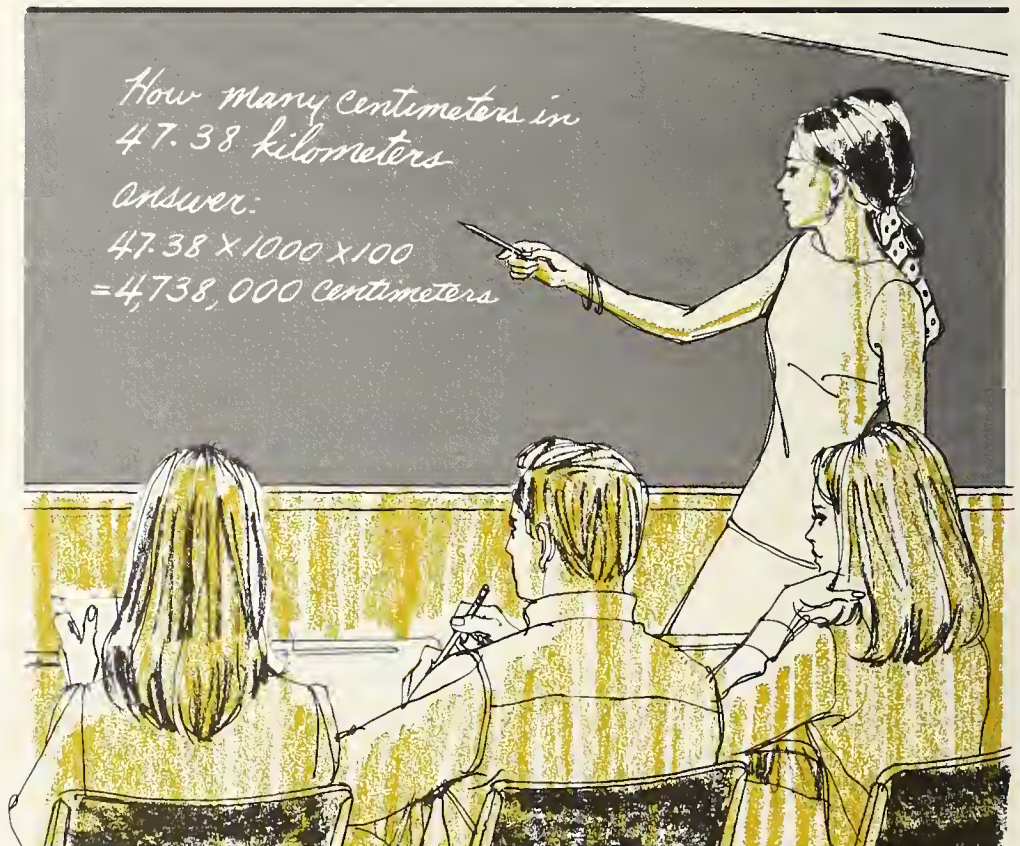 How many centimeters in
47.38 kilometers
answer:
47.38 × 1000 × 100
= 4,738,000 centimeters